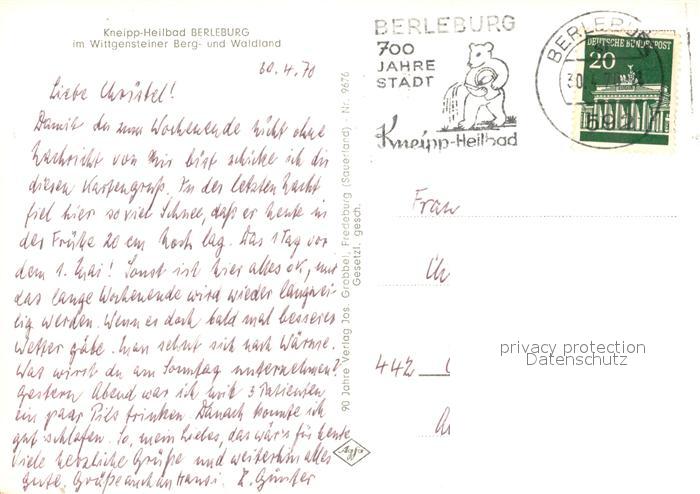 Kneipp-Heilbad BERLEBURG
im Wittgensteiner Berg- und Waldland
30.4.70
Liebe Christel!
Damit du zum Wochenende nicht ohne
Nachricht von mir bist schicke ich dir
diesen Kartengruß. In der letzten Nacht
fiel hier so viel Schnee, daß er heute in
der Frühe 20 cm hoch lag. Das 1 Tag vor
dem 1. Mai! Sonst ist hier alles ok, nur
das lange Wochenende wird wieder langwei-
lig werden. Wenn es doch bald mal besseres
Wetter gäbe. Man sehnt sich nach Wärme.
Was wirst du am Sonntag unternehmen?
Gestern Abend war ich mit 3 Patienten
ein paar Pils trinken. Danach konnte ich
gut schlafen. So, mein Liebes, das wär's für heute
Viele herzliche Grüße und weiterhin alles
Gute. Grüße auch an Hansi. Günter
90 Jahre Verlag Jos. Grobbel, Fredeburg (Sauerland) · Nr. 9676
Gesetzl. gesch.
BERLEBURG
700
JAHRE
STADT
Kneipp-Heilbad
BERLEBURG
30.4.70
DEUTSCHE BUNDESPOST
20
Frau
442
privacy protection
Datenschutz